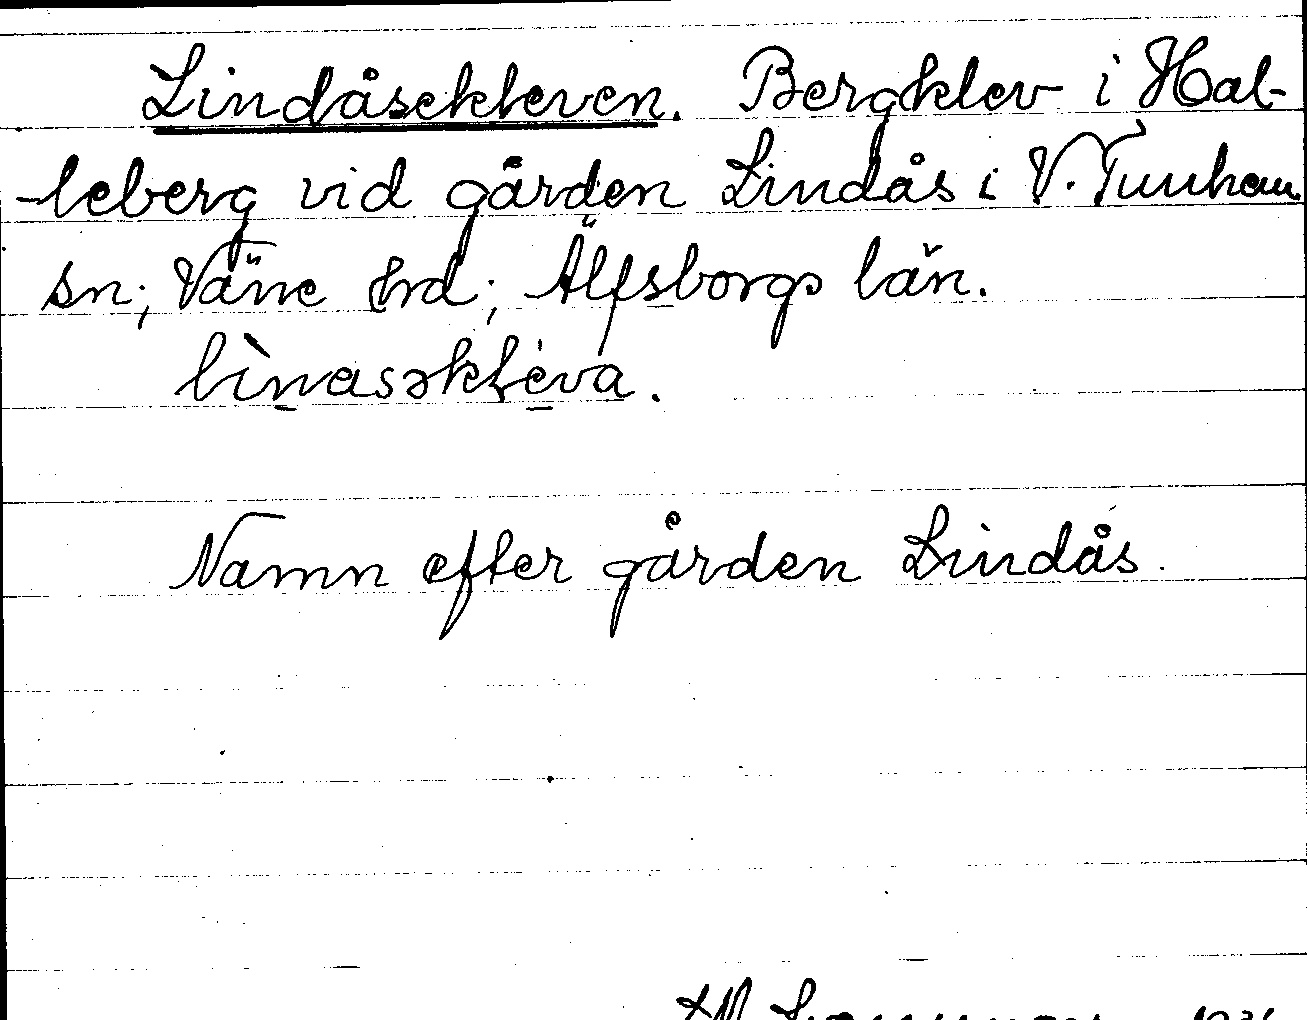 Lindåsekleven. Bergklev i Hal-
leberg vid gården Lindås i V. Tunhem
sn; Väne hrd; Älfsborgs län.
lìnasəkle̍va.
Namn efter gården Lindås.